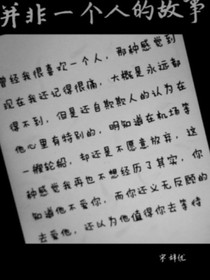 并非一个人的故事
曾经我很喜欢一个人，那种感觉到
现在我还记得很痛，大概是永远都
得不到，但是还自欺欺人的认为在
他心里有特别的，明知道在机场等
一艘轮船，却还是不愿意放弃，这
种感觉我再也不想经历了其实，你
知道他不爱你，而你还义无反顾的
去爱他，还以为他值得你去等待